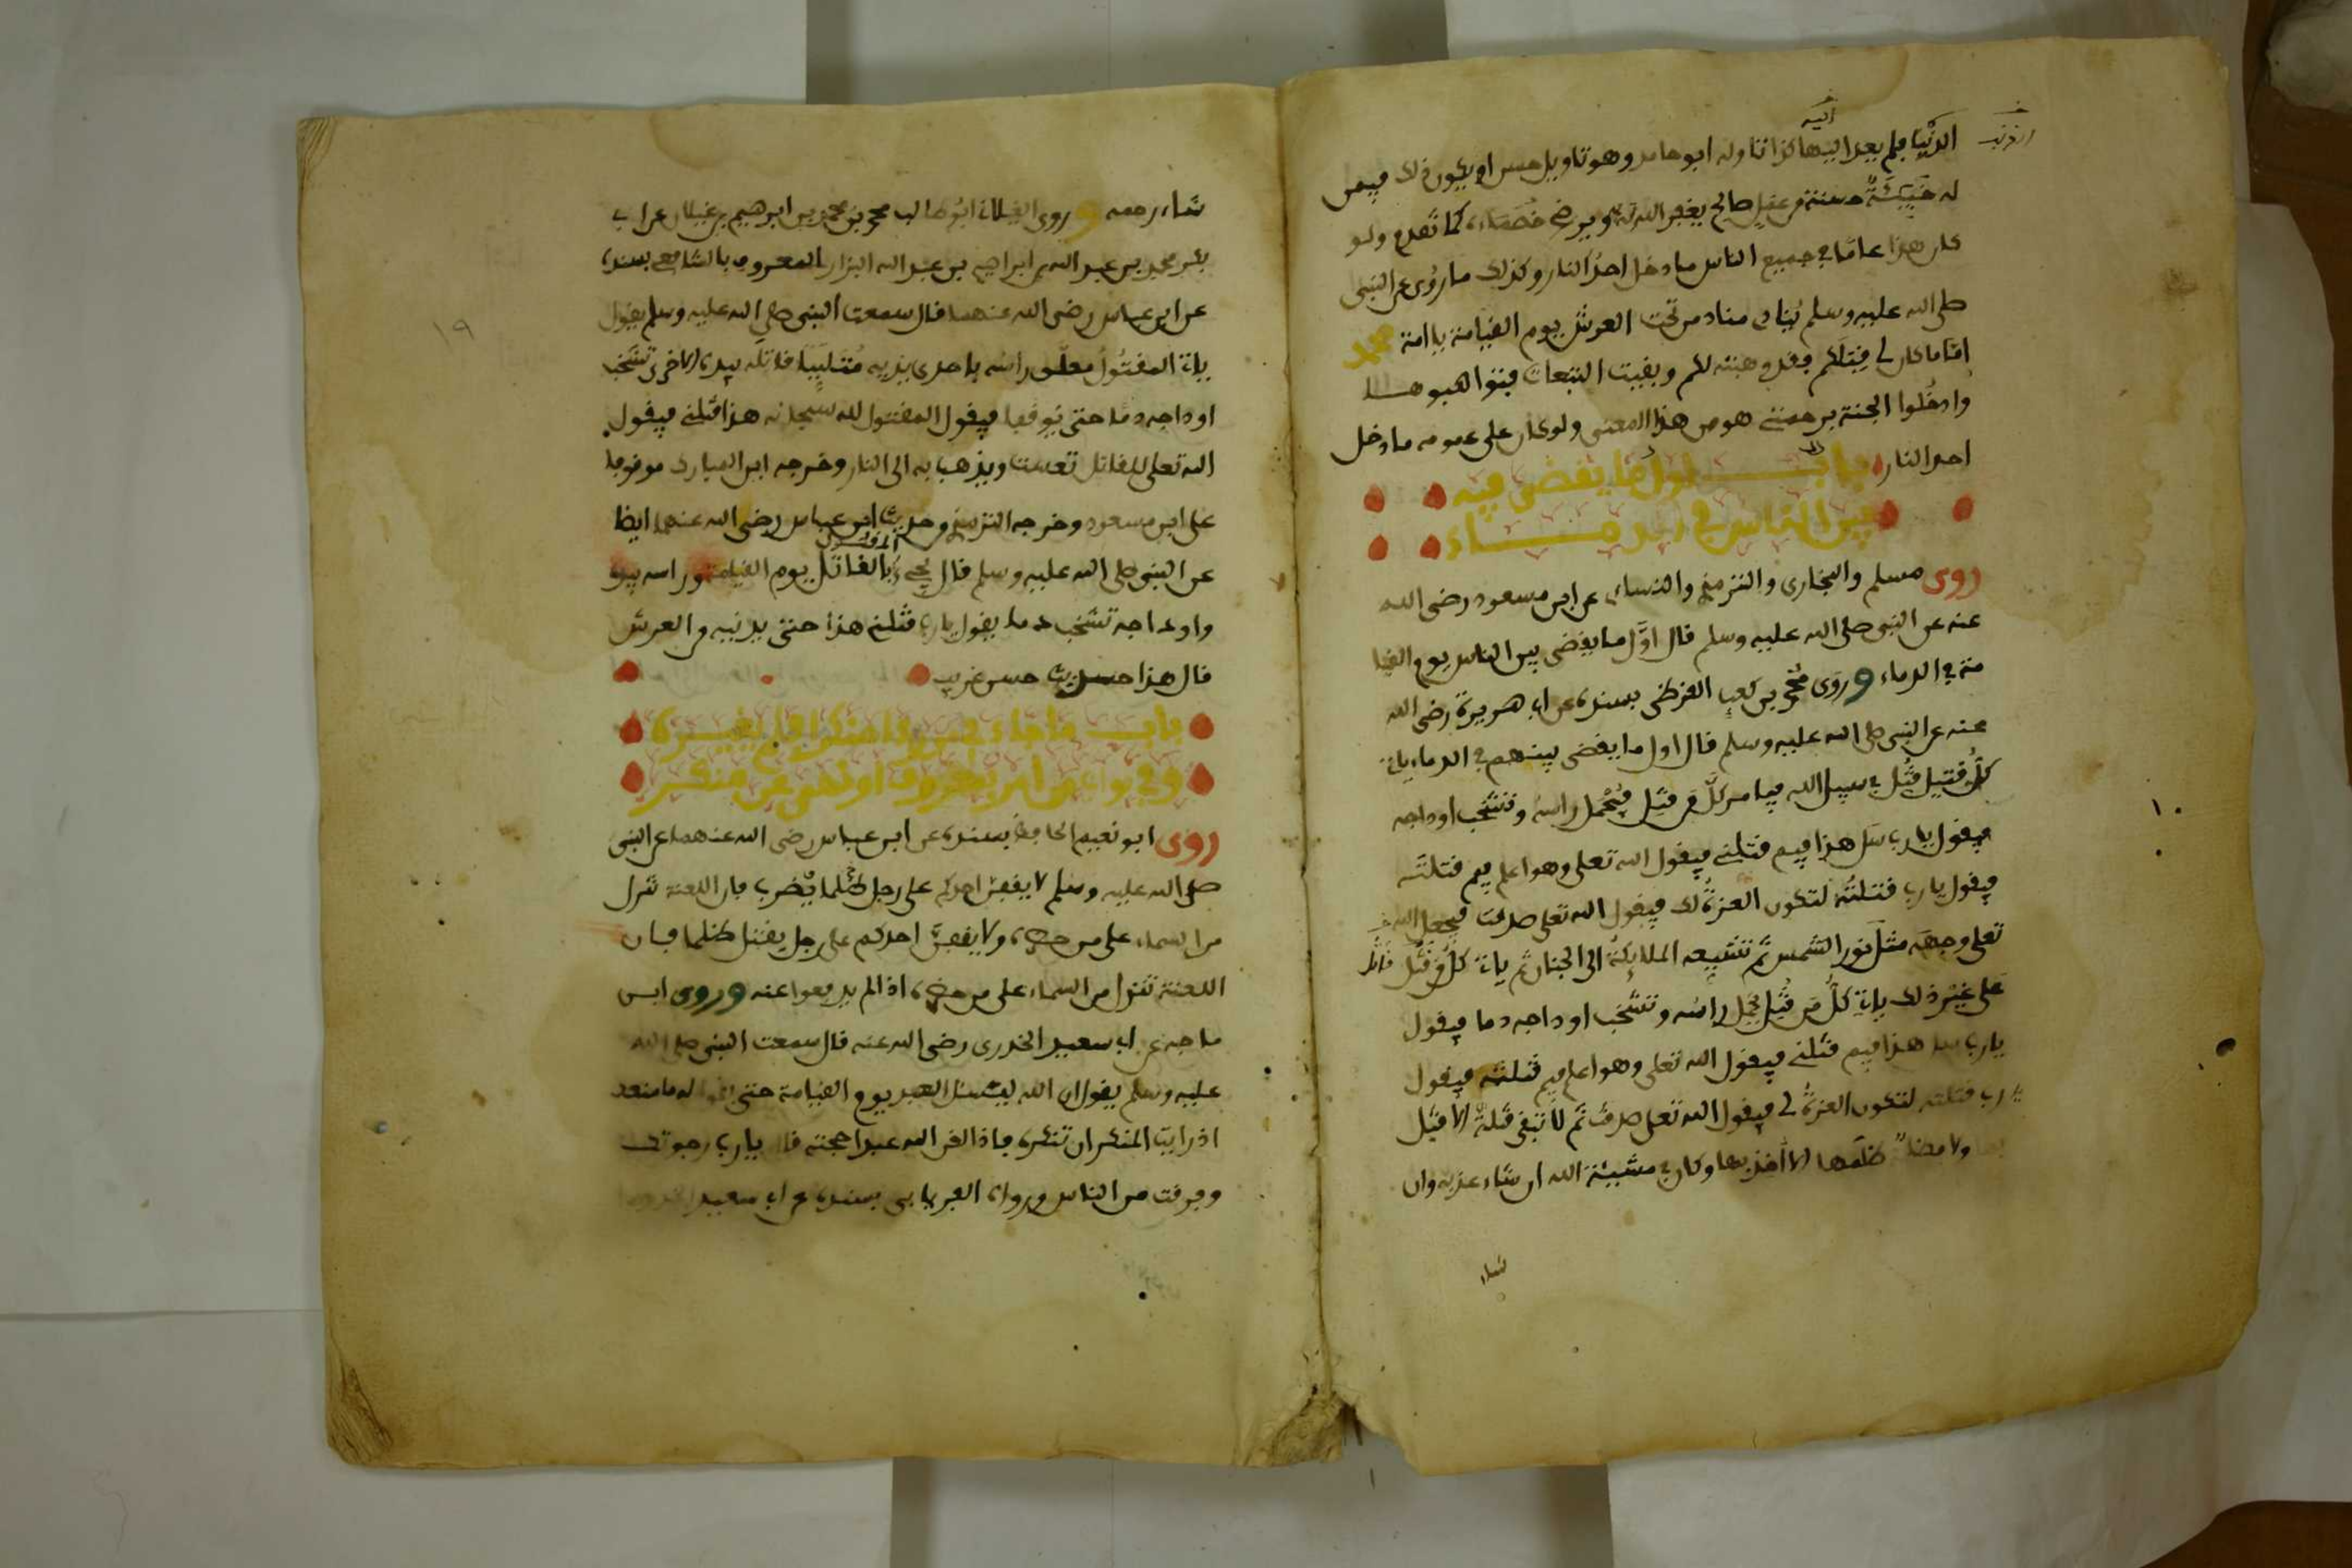 الدنيا فلم يعد اليها كذا تاوله ابو حامد وهو تاويل حسن او يكون ذلك فيمن
اليه
له خبيئة حسنة من عمل صالح يغفر الله له به ويرضى خصماءه كما تقدم ولو
كان هذا عاما في جميع الناس ما دخل احد النار وكذلك ما روي عن النبي
صلى الله عليه وسلم ينادي مناد من تحت العرش يوم القيامة يا امة محمد
اما ما كان لي قبلكم فقد وهبته لكم وبقيت التبعات فتواهبوها
وادخلوا الجنة برحمتي هو من هذا المعنى ولو كان على عمومه ما دخل
احد النار باب اول ما يقضى فيه
بين الناس في الدماء
روى مسلم والبخاري والترمذي والنساي عن ابن مسعود رضي الله
عنه عن النبي صلى الله عليه وسلم قال اول ما يقضى بين الناس يوم القيا
مة في الدماء وروى محمد بن كعب القرظي بسنده عن ابي هريرة رضي الله
عنه عن النبي صلى الله عليه وسلم قال اول ما يقضى بينهم في الدماء ياتي
كل قتيل قتل في سبيل الله فيامر كل من قتل فيحمل راسه وتشخب اوداجه
فيقول يا رب سل هذا فيم قتلني فيقول الله تعلى وهو اعلم فيم قتلته
فيقول يا رب قتلته لتكون العزة لك فيقول الله تعلى صدقت فيجعل الله
تعلى وجهه مثل نور الشمس ثم تشيعه الملائكة الى الجنان ثم ياتي كل من قتل
على غير ذلك ياتي كل من قتل يحمل راسه وتشخب اوداجه دما فيقول
يا رب سل هذا فيم قتلني فيقول الله تعلى وهو اعلم فيم قتلته فيقول
رب قتلته لتكون العزة لي فيقول الله تعلى صدقت ثم لا تبقى قتلة الا قتل
بها ولا مظلمة ظلمها الا اخذ بها وكان في مشيئة الله ان شاء عذبه وان
شاء
١٠
شاء رحمه وروى الغيلاني ابو طالب محمد بن محمد بن ابرهيم بن غيلان عن ابي
بكر محمد بن عبد الله بن ابراهيم بن عبد الله البزار المعروف بالشافعي بسنده
عن ابن عباس رضي الله عنهما قال سمعت النبي صلى الله عليه وسلم يقول
ياتي المقتول معلق راسه باحدى يديه متلببا قاتله بيده الاخرى تشخب
اوداجه دما حتى يوقفا فيقول المقتول لله سبحانه هذا قتلني فيقول
الله تعلى للقاتل تعست ويذهب به الى النار وخرجه ابن المبارك موقوفا
على ابن مسعود وخرجه الترمذي وحديث ابن عباس رضي الله عنهما ايضا
المقتول
عن النبي صلى الله عليه وسلم قال يجيء بالقاتل يوم القيامة وراسه بيده
واوداجه تشخب دما يقول يا رب قتلني هذا حتى يدنيه من العرش
قال هذا حديث حسن غريب
باب ما جاء في من راى منكرا فلم يغيره
وفي ثواب من امر بمعروف او نهى عن منكر
روى ابو نعيم الحافظ بسنده عن ابن عباس رضي الله عنهما عن النبي
صلى الله عليه وسلم لا يقفن احدكم على رجل ظلما يضرب فان اللعنة تنزل
من السماء على من حضره ولا يقفن احدكم على رجل يقتل ظلما فان
اللعنة تنزل من السماء على من حضره اذا لم يدفعوا عنه وروى ابن
ماجه عن ابي سعيد الخدري رضي الله عنه قال سمعت النبي صلى الله
عليه وسلم يقول ان الله ليسئل العبد يوم القيامة حتى يقول له ما منعك
اذ رايت المنكر ان تنكره فاذا لقن الله عبدا حجته قال يا رب رجوتك
وفرقت من الناس ورواه الفريابي بسنده عن ابي سعيد الخدري
١٩